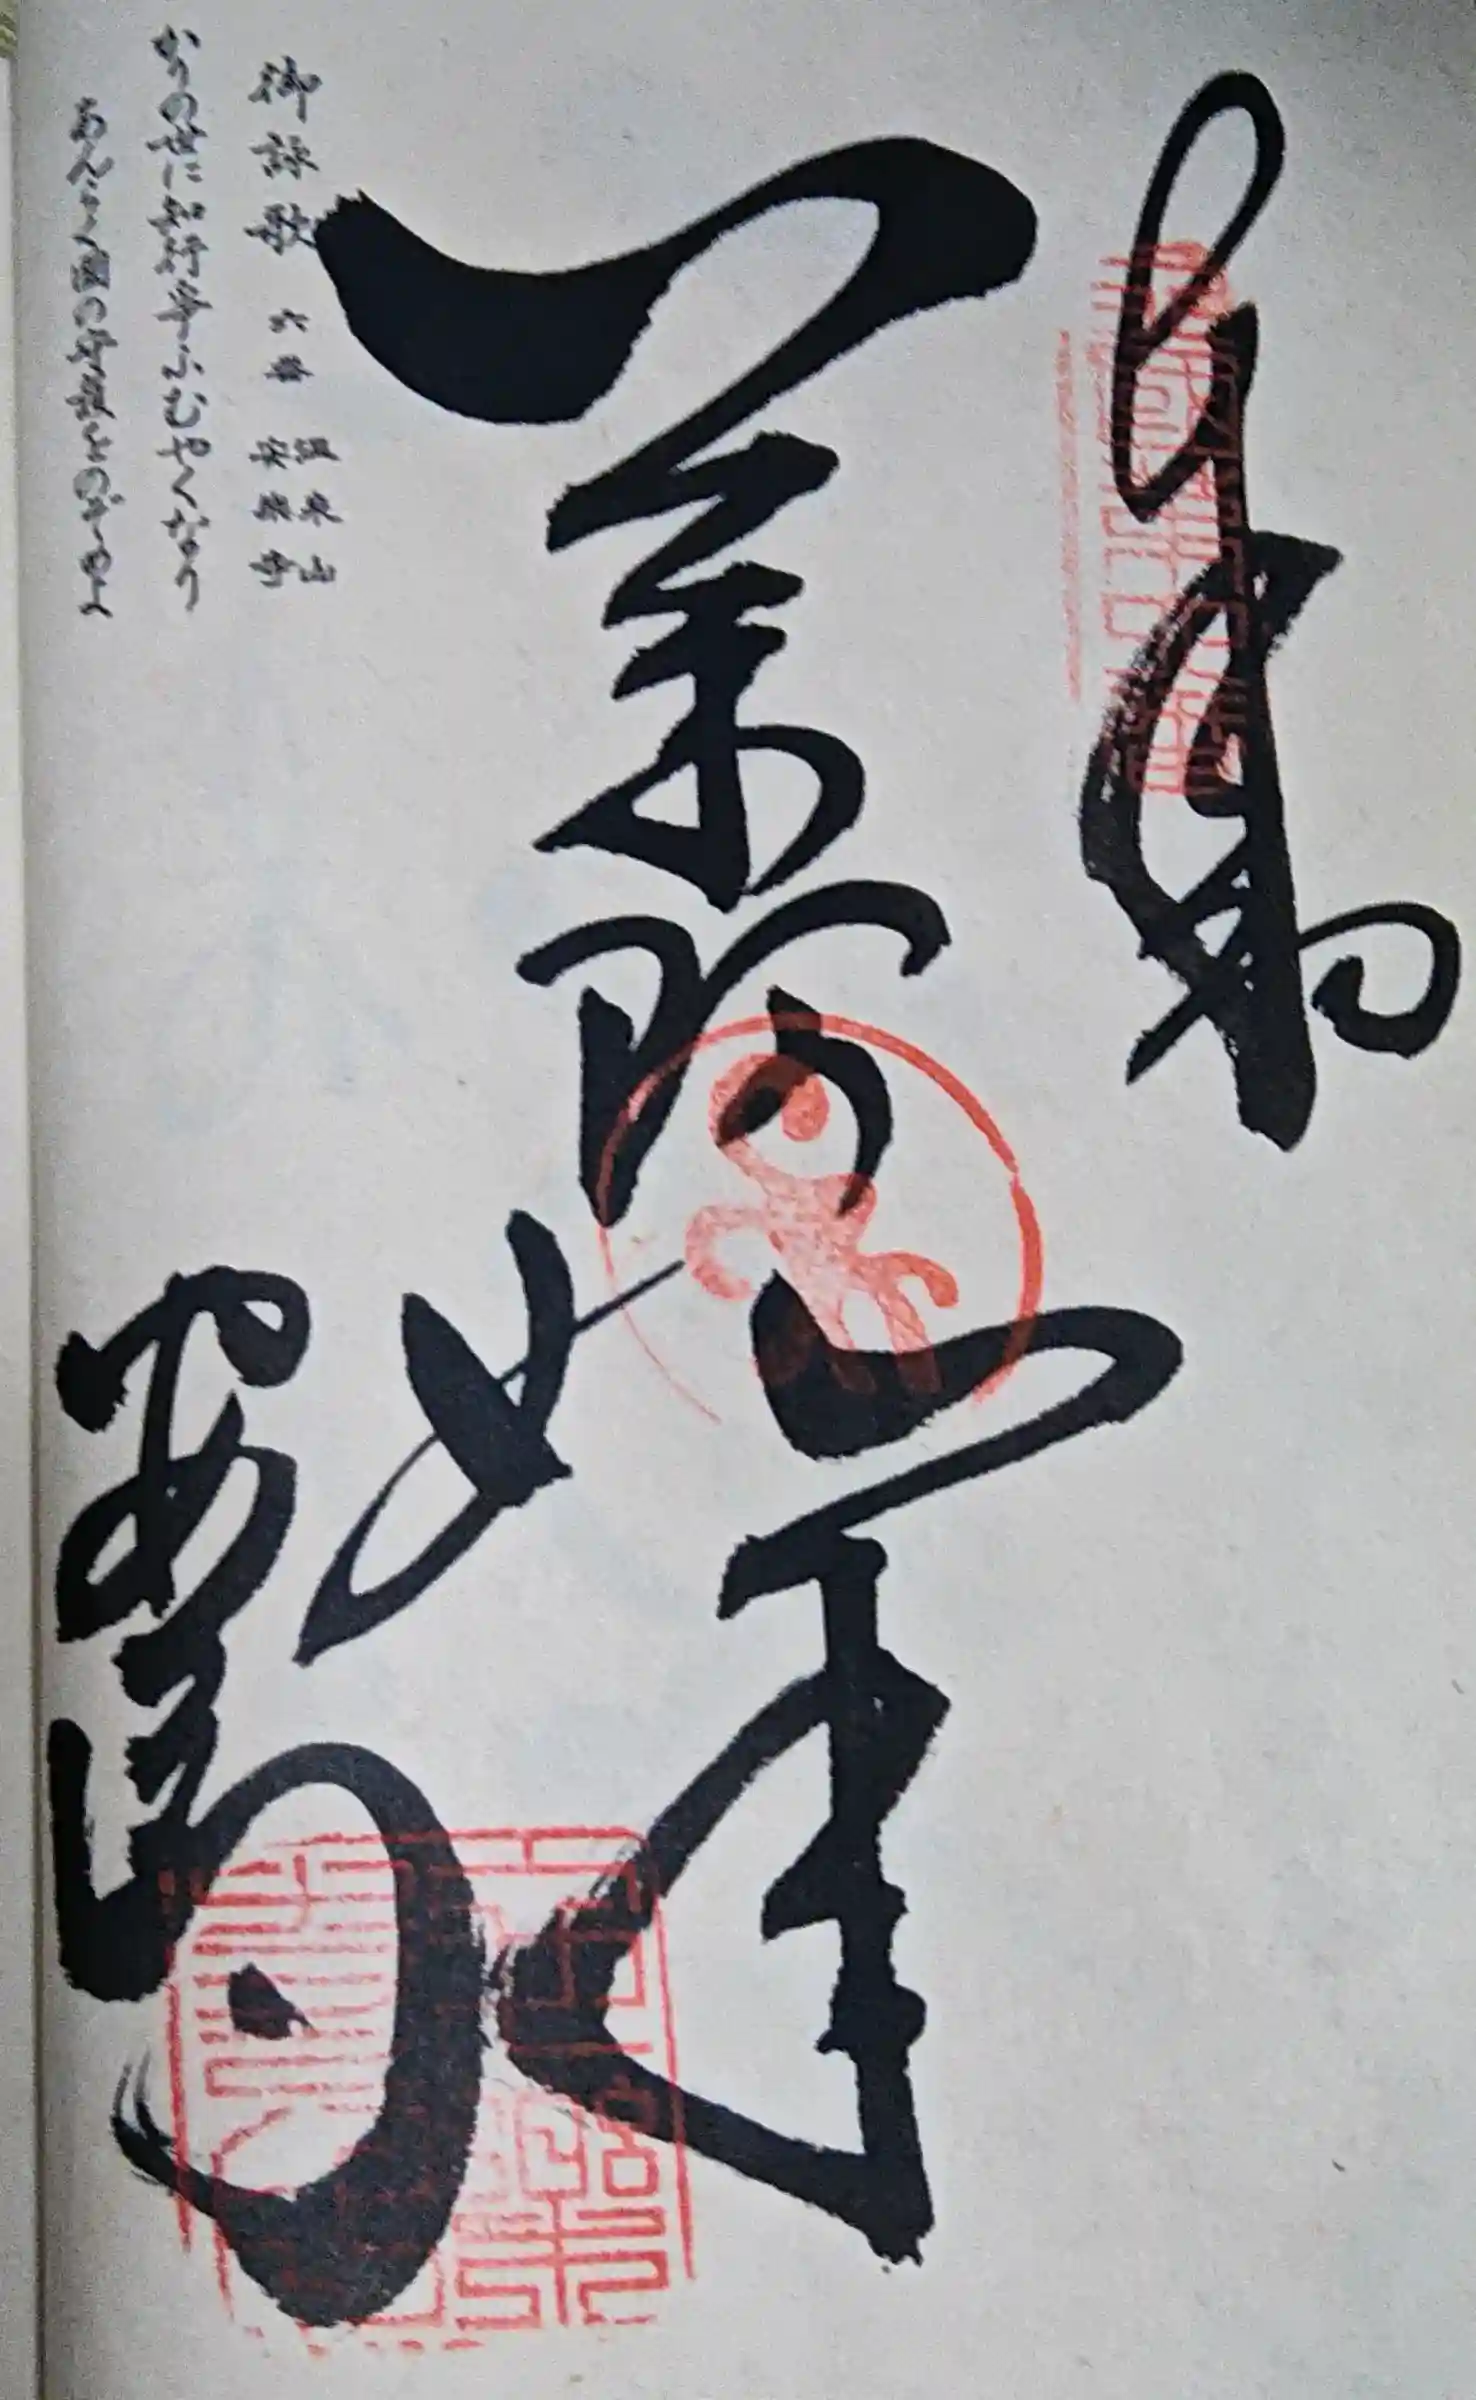 薬師如来
安楽寺
御詠歌 六番 温泉山 安楽寺
かりの世に知行争ふむやくなり
あんらく国の守護をのぞめよ